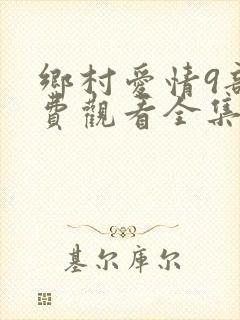 鄉村愛情9
費觀看全集
基尔库尔